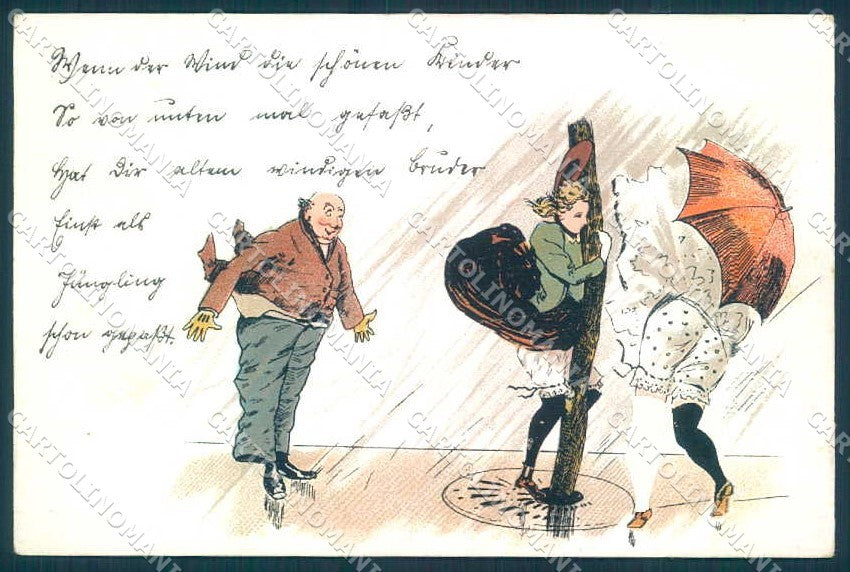 Wenn der Wind die schönen Kinder
So von unten mal gefaßt,
Hat Dir altem windigen Bruder
Einst als
Jüngling
schon gepaßt.
CARTOLINOMANIA